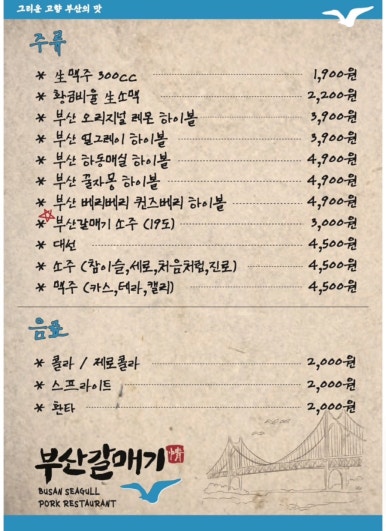 그리운 고향 부산의 맛
주류
* 生맥주 300cc 1,900원
* 황금비율 生소맥 2,200원
* 부산 오리지널 레몬 하이볼 3,900원
* 부산 얼그레이 하이볼 3,900원
* 부산 하동매실 하이볼 4,900원
* 부산 꿀자몽 하이볼 4,900원
* 부산 베리베리 퀸즈베리 하이볼 4,900원
* 부산갈매기 소주 (19도) 3,000원
* 대선 4,500원
* 소주 (참이슬,세로,처음처럼,진로) 4,500원
* 맥주 (카스,테라,켈리) 4,500원
음료
* 콜라 / 제로콜라 2,000원
* 스프라이트 2,000원
* 환타 2,000원
부산갈매기
BUSAN SEAGULL
PORK RESTAURANT